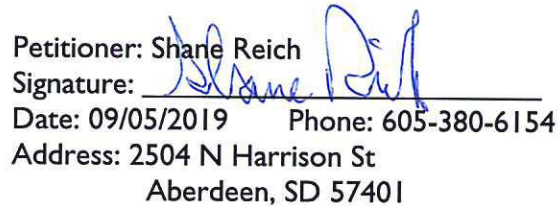 Petitioner: Shane Reich
Signature: Shane Reich
Date: 09/05/2019 Phone: 605-380-6154
Address: 2504 N Harrison St
Aberdeen, SD 57401